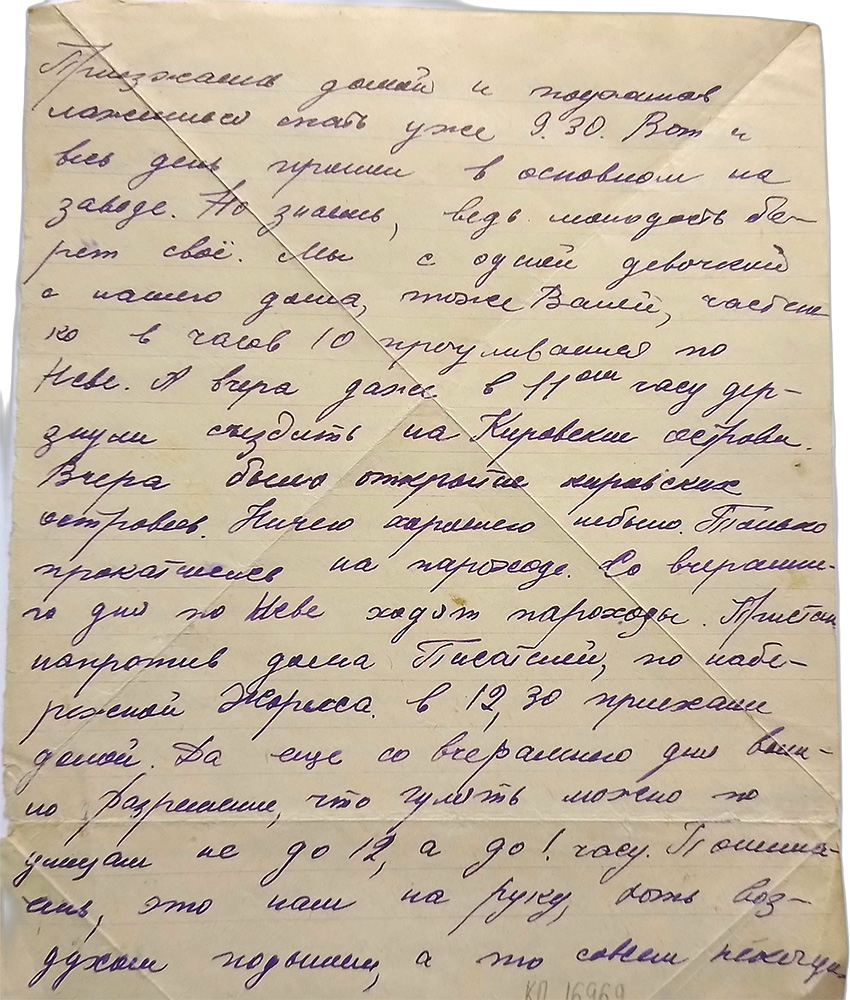 Приезжаешь домой и подчитав
ложишься спать уже 9.30. Вот и
весь день прошел в основном на
заводе. Но знаешь, ведь молодость бе-
рет своё. Мы с одной девочкой
с нашего дома, тоже Валей, частень
ко в часов 10 прогуливаемся по
Неве. А вчера даже в 11ом часу дер-
знули съездить на Кировские острова.
Вчера было открытие кировских
островов. Ничего хорошего небыло. Только
прокатились на пароходе. Со вчерашне-
го дня по Неве ходят пароходы. Пристань
напротив дома Писателей, по набе-
режной Жореса. в 12,30 приехали
домой. Да еще со вчерашнего дня выш-
ло разрешение, что гулять можно по
улицам не до 12, а до 1. часу. Понима-
ешь, это нам на руку, хоть воз-
духом подышим, а то совсем некогда
КП 16969